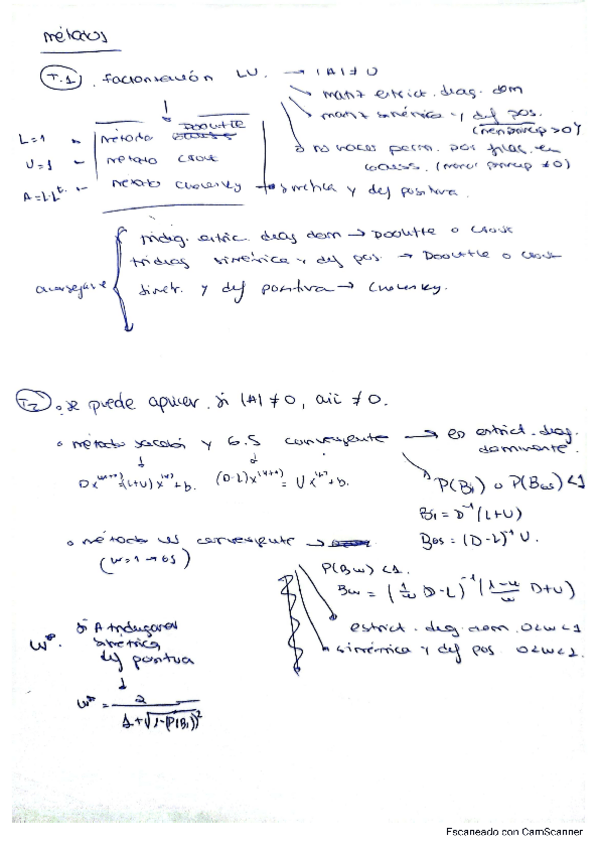 métodos
T.1 . factorización LU. → |A| ≠ 0
matriz estrict. diag. dom
matriz simétrica y def pos.
(men princip > 0)
L=1 método Doolittle
no hacer perm. por filas en
Gauss. (menor princip ≠ 0)
U=1 - método Crout
A=L·Lᵗ método Cholesky → simétrica y def positiva.
tridig. estric. diag dom → Doolittle o Crout
tridiag simétrica y def pos. → Doolittle o Crout
simetr. y def positiva → Cholesky.
T2 . se puede aplicar si |A| ≠ 0, aii ≠ 0.
método Jacobi y G.S convergente → es estrict. diag.
dominante.
Dx⁽ᵏ⁺¹⁾=(L+U)x⁽ᵏ⁾+b. (D-L)x⁽ᵏ⁺¹⁾ = Ux⁽ᵏ⁾+b.
ρ(Bj) o ρ(BGS) < 1
Bj = D⁻¹(L+U)
BGS = (D-L)⁻¹ U.
método convergente →
(w=1 → GS)
ρ(Bw) < 1.
Bw = (1/w D-L)⁻¹ (1-w/w D+U)
estrict. diag dom. 0<w<1
simétrica y def pos 0<w<2.
w*. si A tridiagonal
simétrica
def positiva
w* = 2 / 1+√1-(ρ(Bj))²
Escaneado con CamScanner